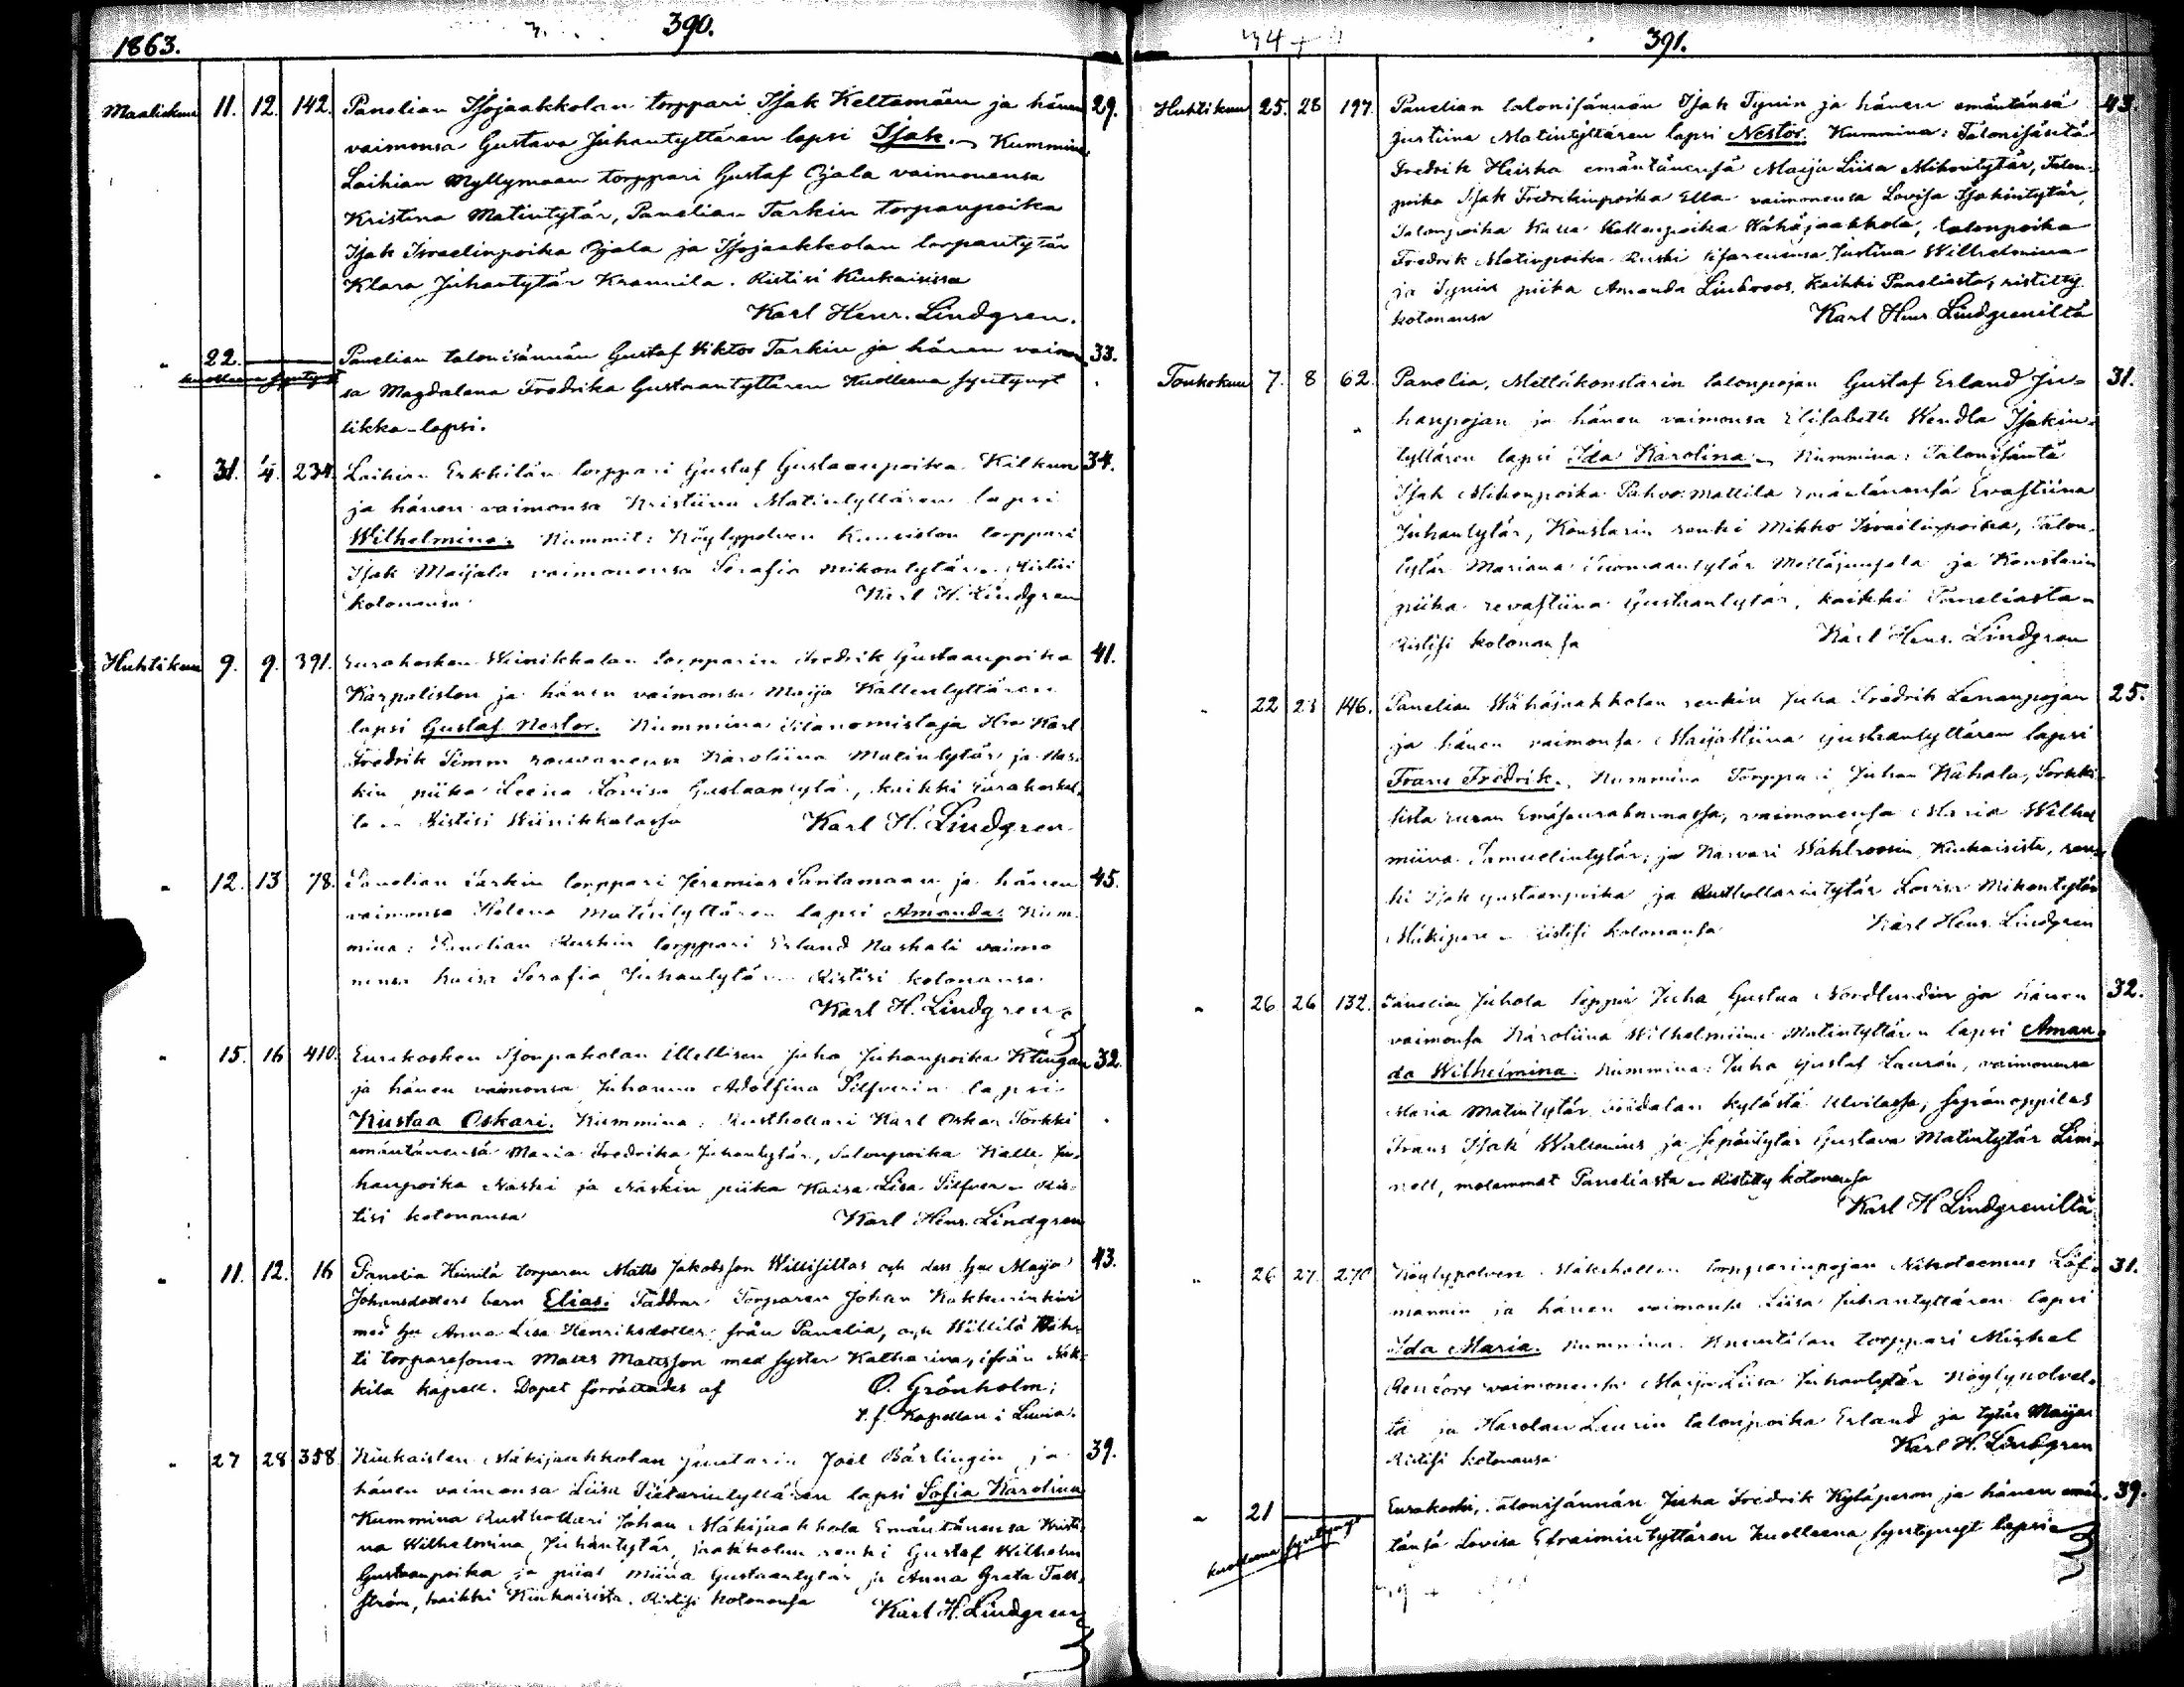 1863.
390.
Maaliskuu 11. 12. 142. Panelian Isojaakkolan torppari Isak Keltamäen ja hänen 29.
vaimonsa Gustava Juhantyttären lapsi Isak. Kummina:
Laihian Myllymaan torppari Gustaf Ojala vaimonensa
Kristina Matintytär, Panelian Tarkin torpanpoika
Isak Israelinpoika Ojala ja Isojaakkolan torpantytär
Klara Juhantytär Krannila. Ristisi Kiukaisissa
Karl Henr. Lindgren.
" 22. Panelian talonisännän Gustaf Viktor Tarkin ja hänen vaimon 33.
kuolleena syntynyt
sa Magdalena Fredrika Gustaantyttären Kuolleena syntynyt
tikka-lapsi.
" 31. 4. 234. Laihian Erkkilän torppari Gustaf Gustaanpoika Kilkun 34.
ja hänen vaimonsa Kristiina Matintyttären lapsi
Wilhelmina. Kummit: Köylypolven Kuusiston torppari
Isak Maijala vaimonensa Serafia Mikontytär. Ristisi
kotonansa. Karl H. Lindgren
Huhtikuu 9. 9. 391. Eurakosken Wiinikkalan torpparin Fredrik Gustaanpoika 41.
Karpaliston ja hänen vaimonsa Maija Kallentyttären
lapsi Gustaf Nestor. Kummina Tilanomistaja Hra Karl
Fredrik Timm rouvanensa Karoliina Matintytär ja Nas-
kin piika Leena Lovisa Gustaantytär, kaikki Eurakoskel-
ta. Ristisi Wiinikkalassa Karl H. Lindgren
" 12. 13 78. Panelian Tarkin torppari Jeremias Santamaan ja hänen 45.
vaimonsa Helena Matintyttären lapsi Amanda. Kum-
mina: Panelian Ruskin torppari Erland Naskali vaimo
nensa Kaisa Serafia Juhantytär. Ristisi kotonansa.
Karl H. Lindgren
" 15. 16 410. Eurakosken Isonpaholan Itellisen Juha Juhanpoika Klingan 32.
ja hänen vaimonsa Juhanna Adolfina Silfverin lapsi
Kustaa Oskari. Kummina: Rusthollari Karl Oskar Torkki
emäntänensä Maria Fredrika Juhantytär, Talonpoika Kalle Ju-
hanpoika Naski ja Naskin piika Kaisa Lisa Silfver. Ris-
tisi kotonansa Karl Henr. Lindgren
" 11. 12. 16 Panelia Heinilä torparen Matts Jakobsson Willisillas och dess hu Maja 43.
Johansdotters barn Elias. Faddrar Torparen Johan Kakkurinkivi
med hu Anna Lisa Henriksdotter från Panelia, och Willilä
ti torparesonen Matts Mattsson med syster Katharina, ifrån Nak-
kila kapell. Dopet förrättades af O. Grönholm;
v. f. Kapellan i Luvia.
" 27 28 358 Kiukaisten Mäkijaakkolan Juutarin Joel Bärlingin ja 39.
hänen vaimonsa Liisa Pietarintyttären lapsi Sofia Karolina
Kummina Rusthollari Johan Mäkijaakkola Emäntänensa Kristi-
na Wilhelmina Juhantytär, Jaakkolan renki Gustaf Wilhelm
Gustaanpoika ja piiat Miina Gustaantytär ja Anna Greta Täll-
ström, kaikki Kiukaisista. Ristisi kotonansa Karl H. Lindgren
391.
Huhtikuu 25. 28 197. Panelian talonisännän Isak Tynin ja hänen emäntänsä 43.
Justiina Matintyttären lapsi Nestor. Kummina: Talonisäntä
Fredrik Heiska emäntänensä Maija Liisa Mikontytär, Talon-
poika Isak Fredrikinpoika Ella vaimonensa Lovisa Isakintytär,
Talonpoika Kalle Kallenpoika Wähäjaakkola, talonpoika
Fredrik Matinpoika Ruski sisarensa Justina Wilhelmina
ja Tynin piika Amanda Lindroos. Kaikki Paneliasta, ristitty
kotonansa Karl Henr Lindgreniltä
Toukokuu 7. 8 62. Panelia, Mettäkonstarin talonpojan Gustaf Erland Ju- 31.
hanpojan ja hänen vaimonsa Elisabeth Wendla Isakin-
tyttären lapsi Ida Karolina. Kummina: Talonisäntä
Isak Mikonpoika Pahvo-mattila emäntänensä Evastiina
Juhantytär, Konstarin renki Mikko Israelinpoika, Talon-
tytär Mariana Tuomaantytär Mettäpunpola ja Konstarin
piika Evastiina Gustaantytär, kaikki Paneliasta
Ristisi kotonansa Karl Henr. Lindgren
" 22 23 146. Panelian Wähäjaakkolan renkin Juha Fredrik Lenanpojan 25.
ja hänen vaimonsa Maijastiina Gustaantyttären lapsi
Frans Fredrik. Kummina Torppari Juhan Kahala, Sorkki-
sista Euran Emäseurakunnassa, vaimonensa Maria Wilhel
miina Samuelintytär; ja Karvari Wahlroosin Kiukaisista, ren-
ki Isak Gustaanpoika ja Rusthollarintytär Lovisa Mikontytär
Mäkipere. Ristisi kotonansa Karl Henr. Lindgren
" 26 26 132. Panelian Juhola Seppä Juha Gustaa Nordlundin ja hänen 32.
vaimonsa Karoliina Wilhelmiina Matintyttären lapsi Aman-
da Wilhelmina. Kummina: Juha Gustaf Laurén, vaimonensa
Maria Matintytär kylästä Ulvilassa, sepänoppilas
Frans Isak Wallenius ja sepäntytär Gustava Matintytär Lim-
nell, molemmat Paneliasta. Ristitty kotonansa
Karl H Lindgreniltä
" 26 27. 270 Köylypolven Mäkihollin torpparinpojan Nikoteemus Löf- 31.
mannin ja hänen vaimonsa Liisa Juhantyttären lapsi
Ida Maria. Kummina. Knuutilan torppari Mickel
Renfors vaimonensa Maija Liisa Juhantytär Köylypolvel-
ta ja Harolan Laurin talonpoika Erland ja tytär Maija
Ristisi kotonansa Karl H. Lindgren
" 21 Eurakoski, talonisännän Juha Fredrik Kyläperon ja hänen emän- 39.
kuolleena syntynyt
tänsä Lovisa Efraimintyttären kuolleena syntynyt lapsi